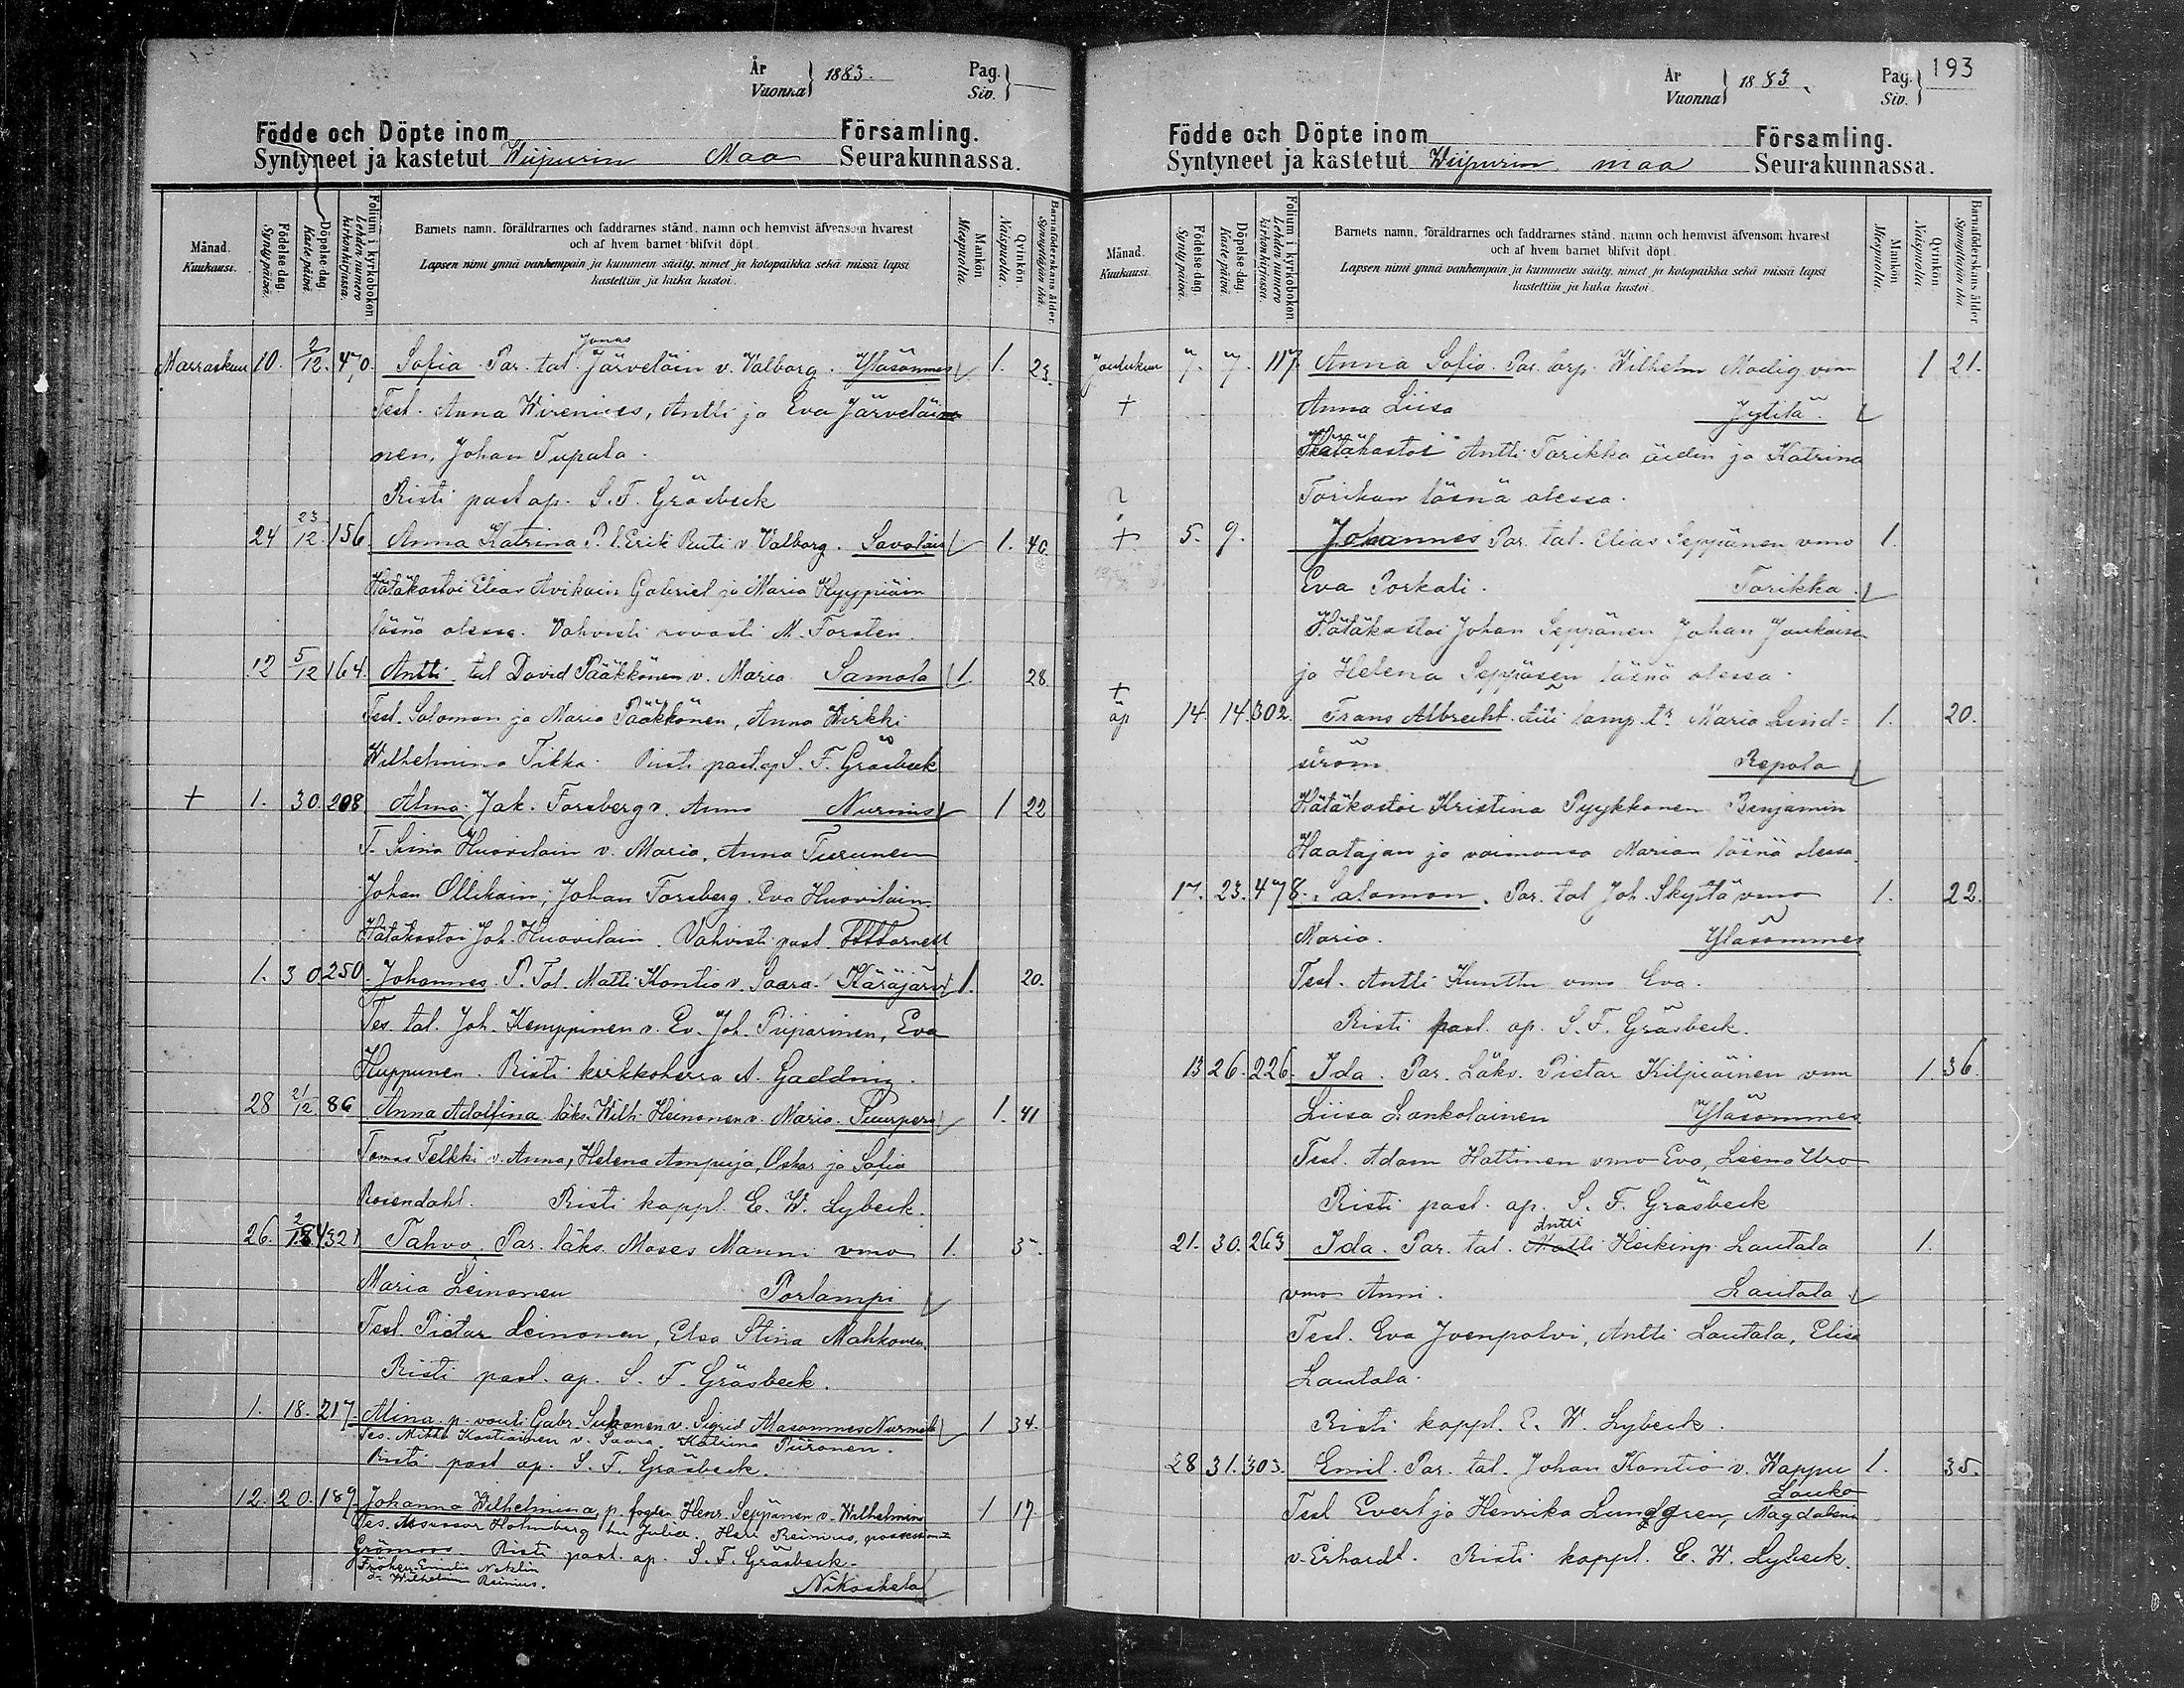 År
Vuonna } 1883.
Pag.
Siv. }
Födde och Döpte inom Församling.
Syntyneet ja kastetut Wiipurin Maa Seurakunnassa.
Månad.
Kuukausi.
Födelse-dag.
Syntypäivä.
Döpelse-dag.
Kastepäivä.
Folium i kyrkoboken
Lehden numero kirkonkirjassa.
Barnets namn, föräldrarnes och faddrarnes stånd, namn och hemvist äfvensom hvarest
och af hvem barnet blifvit döpt.
Lapsen nimi ynnä vanhempain ja kummein sääty, nimet ja kotopaikka sekä missä lapsi
kastettiin ja kuka kastoi.
Mankön
Miespuolia.
Qvinkön
Naispuolia.
Barnaföderskans ålder
Synnyttäjän ikä.
Jonas
Marraskuu 10. 2/12. 470. Sofia. Par. tal. Järveläin v. Valborg. Yläsommes 1. 23
Test. Anna Wirenius, Antti ja Eva Järveläi
nen, Johan Tupala.
Risti past ap. S. F. Gräsbeck
24 23/12. 156. Anna Katrina P. l. Erik Ruti v. Valborg. Savolais 1. 40.
Hätäkastoi Elias Avikain Gabriel ja Maria Kyypiäin
läsnä olessa. Vahvisti rovasti M. Forsten.
12 5/12 164. Antti tal David Pääkkönen v. Maria Samola 1. 28
Test. Salomon ja Maria Pääkkönen, Anna Wirkki
Wilhelmina Tikka. Risti past ap S. F. Gräsbeck
+ 1. 30. 208 Alma. Jak. Forsberg v. Anna Nurmis 1 22
T. Huovilain v. Maria, Anna Turunen
Johan Ollikain, Johan Forsberg. Eva Huovilain.
Hätäkastoi Joh. Huovilain. Vahvisti past.
1. 30. 250. Johannes. P. Tal. Matti Kontio v. Saara. Käräjärvi 1. 20.
Tes. tal. Joh. Kemppinen v. Ev. Joh. Piiparinen, Eva
Huppunen. Risti kirkkoherra A. Gadding.
28 21/12 86 Anna Adolfina läks. Wilh. Heinonen v. Maria. Suurpero 1. 41
Tomas Telkki v. Anna, Helena Ampuja, Oskar ja Sofia
Rosendahl. Risti kappl. E. W. Lybeck.
26. 321 Tahvo. Par. läks. Moses Manni vmo 1. 3
Maria Leinonen Porlampi
Test. Pietar Leinonen, Elsa Stina Mahkonen.
Risti past. ap. S. F. Gräsbeck.
1. 18. 217. Alina. p. vouti Gabr. Suhonen v. Sigrid Alasommes Nurmela 1 34.
Tes. Mikko Kostiainen v. Saara. Katrina Piironen.
Risti past ap. S. F. Gräsbeck.
12. 20. 189. Johanna Wilhelmina, p. fogden Henr. Seppänen v. Wilhelmin 1 17.
Tes. Assessor Holmberg Julia. Herr Reinius,
Grönroos. Risti past. ap. S. F. Gräsbeck.
Fröken Emilie
Wilhelmin Reinius. Nikoskela
År
Vuonna } 1883.
Pag.
Siv. } 193
Födde och Döpte inom Församling.
Syntyneet ja kastetut Wiipurin maa Seurakunnassa.
Månad.
Kuukausi.
Födelse-dag.
Syntypäivä.
Döpelse-dag.
Kastepäivä.
Folium i kyrkoboken
Lehden numero kirkonkirjassa.
Barnets namn, föräldrarnes och faddrarnes stånd, namn och hemvist äfvensom hvarest
och af hvem barnet blifvit döpt.
Lapsen nimi ynnä vanhempain ja kummein sääty, nimet ja kotopaikka sekä missä lapsi
kastettiin ja kuka kastoi.
Mankön
Miespuolia.
Qvinkön
Naispuolia.
Barnaföderskans ålder
Synnyttäjän ikä.
Joulukuu 7. 7. 117. Anna Sofia. Par. torp. Wilhelm Modig vmo 1 21.
+ Anna Liisa Jytilä.
Hätäkastoi Antti Tarikka äidin ja Katrina
? Tarikan läsnä olessa.
+ 5. 9. Johannes Par. tal. Elias Seppänen vmo 1.
Eva Porkali. Tarikka.
Hätäkastoi Johan Seppänen Johan Joukaisen
ja Helena Seppäsen läsnä olessa.
+
äp 14. 14. 302. Frans Albrecht. äiti lamp. tr Maria Lind= 1. 20.
ström Repola
Hätäkastoi Kristina Pyykkonen Benjamin
Haatajan ja vaimonsa Marian läsnä olessa.
17. 23. 478. Salomon. Par. tal Joh. Skyttä vmo 1. 22.
Maria. Yläsommes
Test. Antti Kunttu vmo Eva.
Risti past. ap. S. F. Gräsbeck.
13 26. 226. Ida. Par. Läks. Pietar Kilpiäinen vmo 1. 36.
Liisa Lankolainen Yläsommes.
Test. Adam Hattinen vmo Eva, Leena Uro
Risti past. ap. S. F. Gräsbeck
Antti
21. 30. 263 Ida. Par. tal. Matti Heikinp. Lautala 1.
vmo Anni. Lautala.
Test. Eva Joenpolvi, Antti Lautala, Elisa
Lautala.
Risti kappl. E. W. Lybeck.
28 31. 303. Emil. Par. tal. Johan Kontio v. Wappu 1. 35.
Lauko
Test Evert ja Henrika Lundgren, Magdalena
v. Erhardt. Risti kappl. E. W. Lybeck.